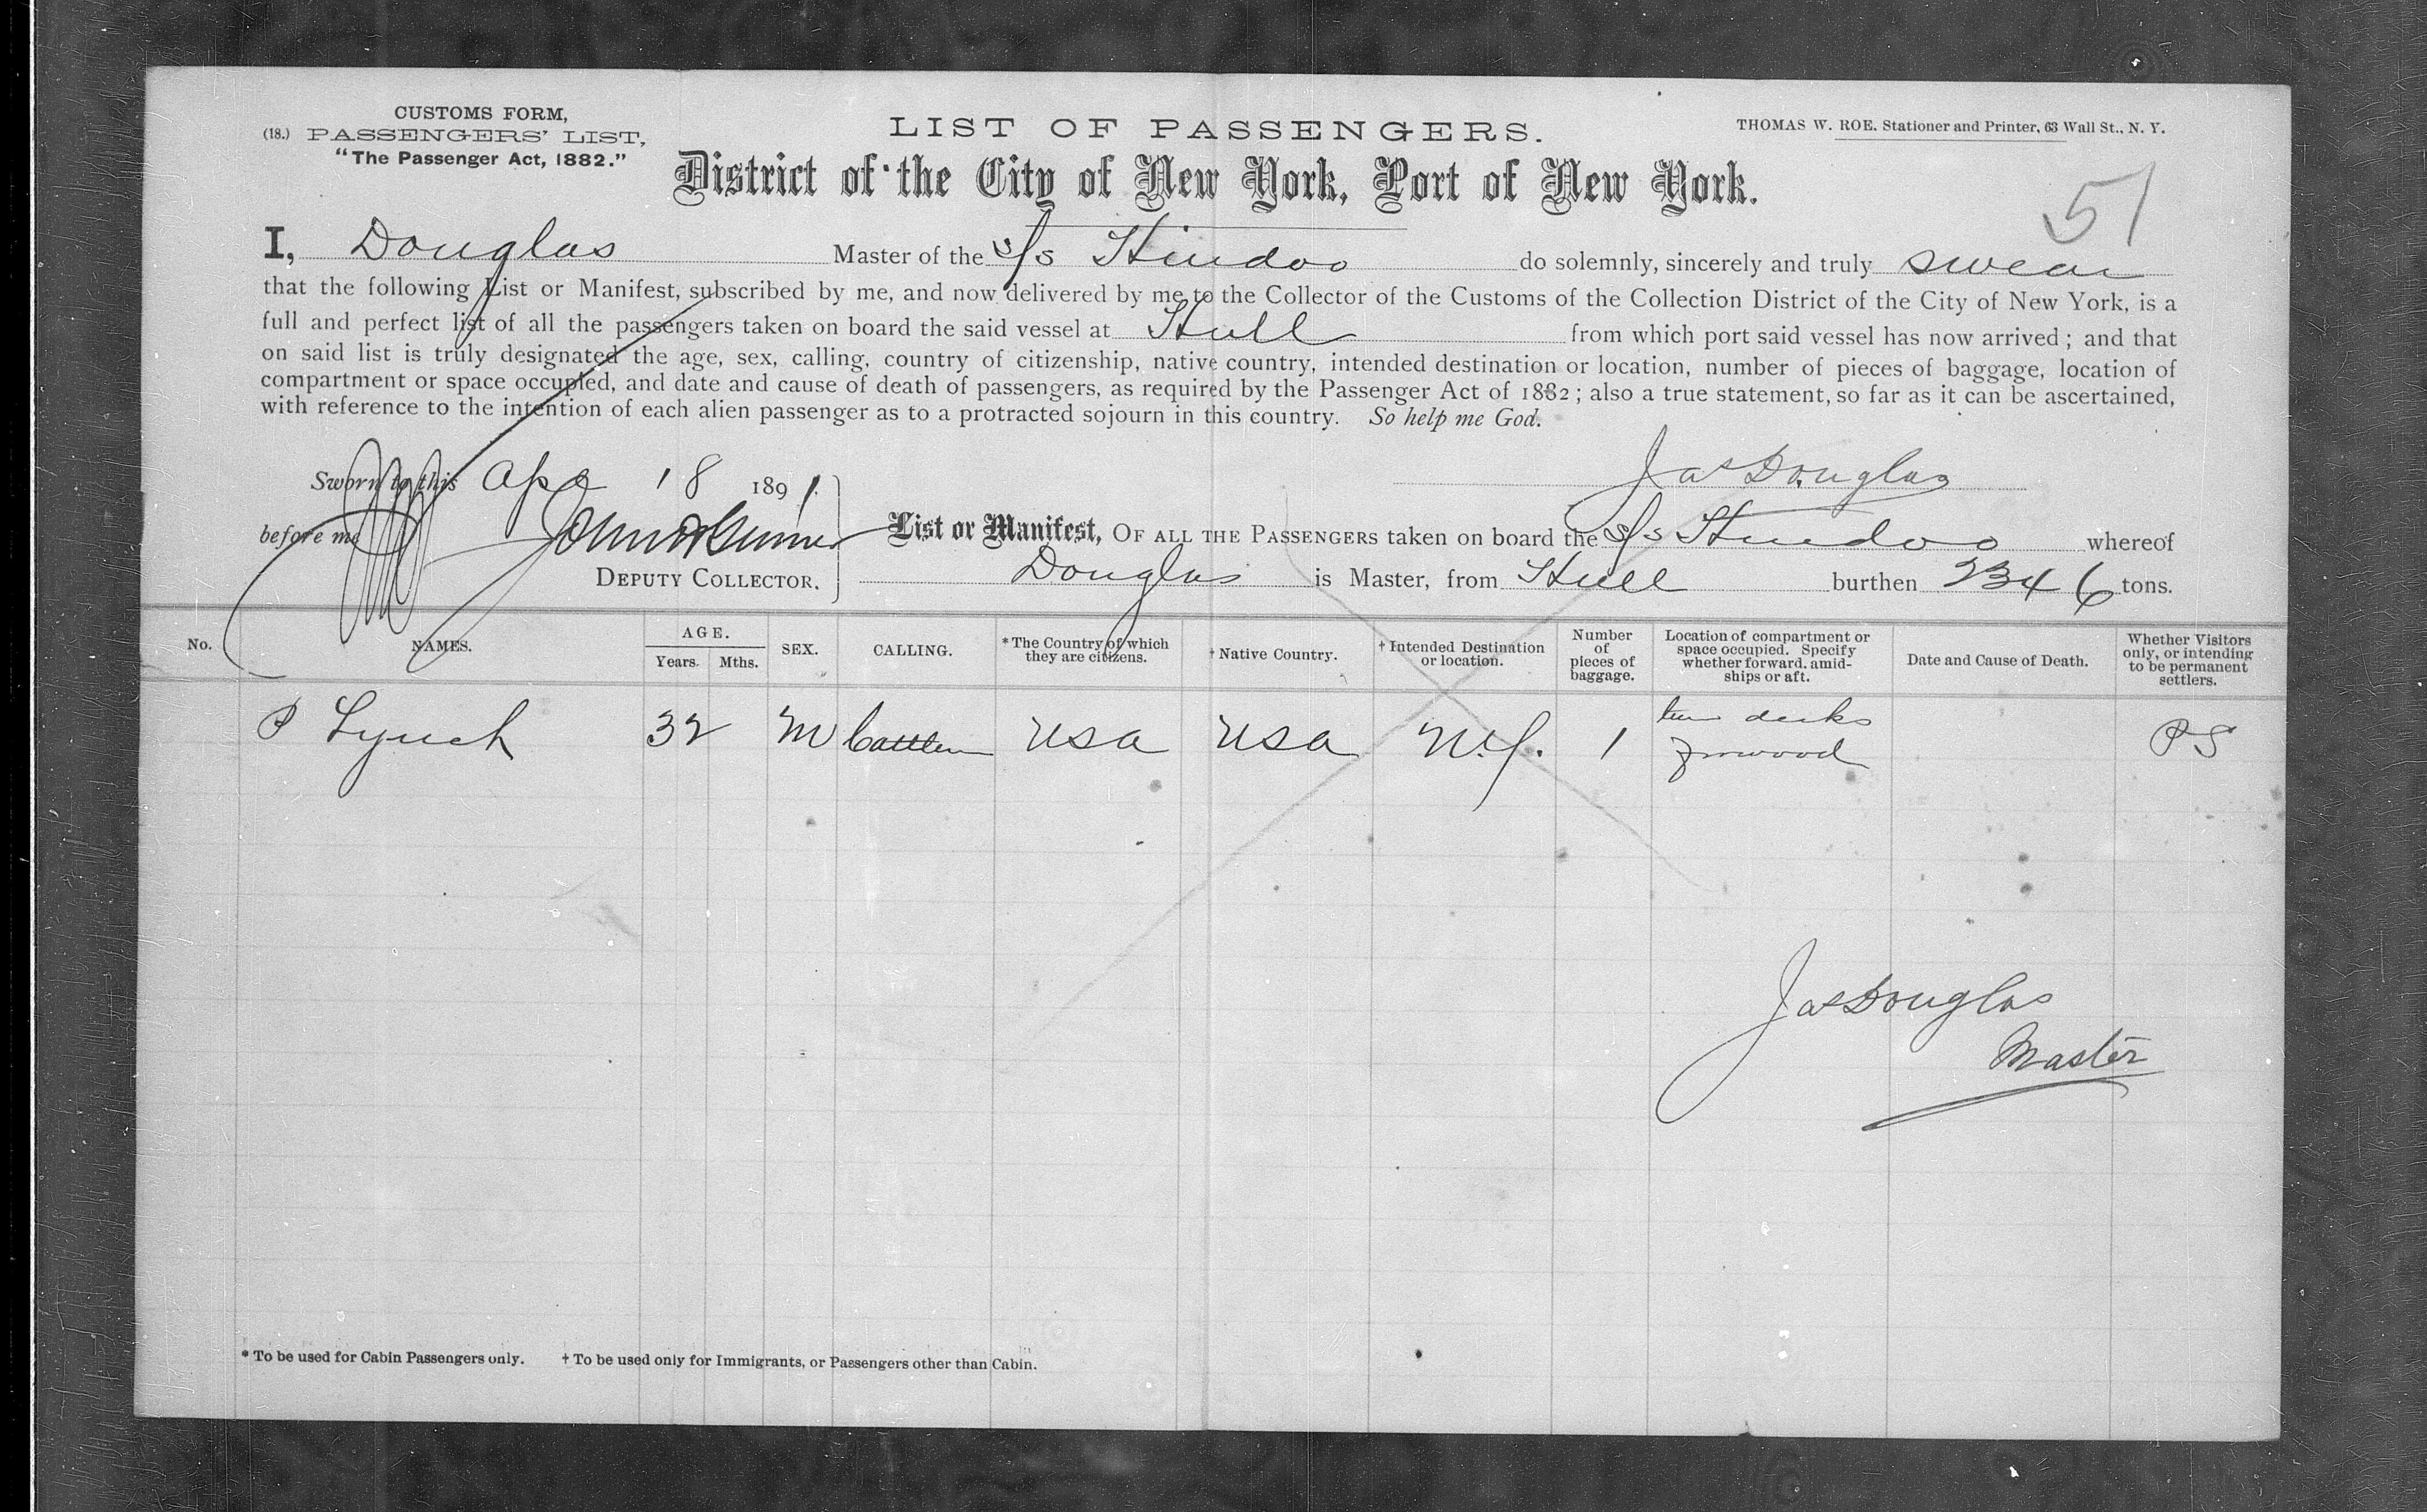 CUSTOMS FORM,
(18.) PASSENGERS' LIST,
"The Passenger Act, 1882."
LIST OF PASSENGERS.
THOMAS W. ROE. Stationer and Printer, 63 Wall St., N. Y.
District of the City of New York, Port of New York.
51
I, Douglas Master of the s/s Hindoo do solemnly, sincerely and truly swear
that the following List or Manifest, subscribed by me, and now delivered by me to the Collector of the Customs of the Collection District of the City of New York, is a
full and perfect list of all the passengers taken on board the said vessel at Hull from which port said vessel has now arrived; and that
on said list is truly designated the age, sex, calling, country of citizenship, native country, intended destination or location, number of pieces of baggage, location of
compartment or space occupied, and date and cause of death of passengers, as required by the Passenger Act of 1882; also a true statement, so far as it can be ascertained,
with reference to the intention of each alien passenger as to a protracted sojourn in this country. So help me God.
Sworn to this Apl 18 1891.
Jas Douglas
before me
DEPUTY COLLECTOR.
List or Manifest, OF ALL THE PASSENGERS taken on board the s/s Hindoo whereof
Douglas is Master, from Hull burthen 2346 tons.
No. NAMES. AGE. Years. Mths. SEX. CALLING. * The Country of which they are citizens. † Native Country. † Intended Destination or location. Number of pieces of baggage. Location of compartment or space occupied. Specify whether forward, amidships or aft. Date and Cause of Death. Whether Visitors only, or intending to be permanent settlers.
P Lynch 32 M Cattlem USA USA N.Y. 1 decks forward PS
Jas Douglas
Master
* To be used for Cabin Passengers only. † To be used only for Immigrants, or Passengers other than Cabin.